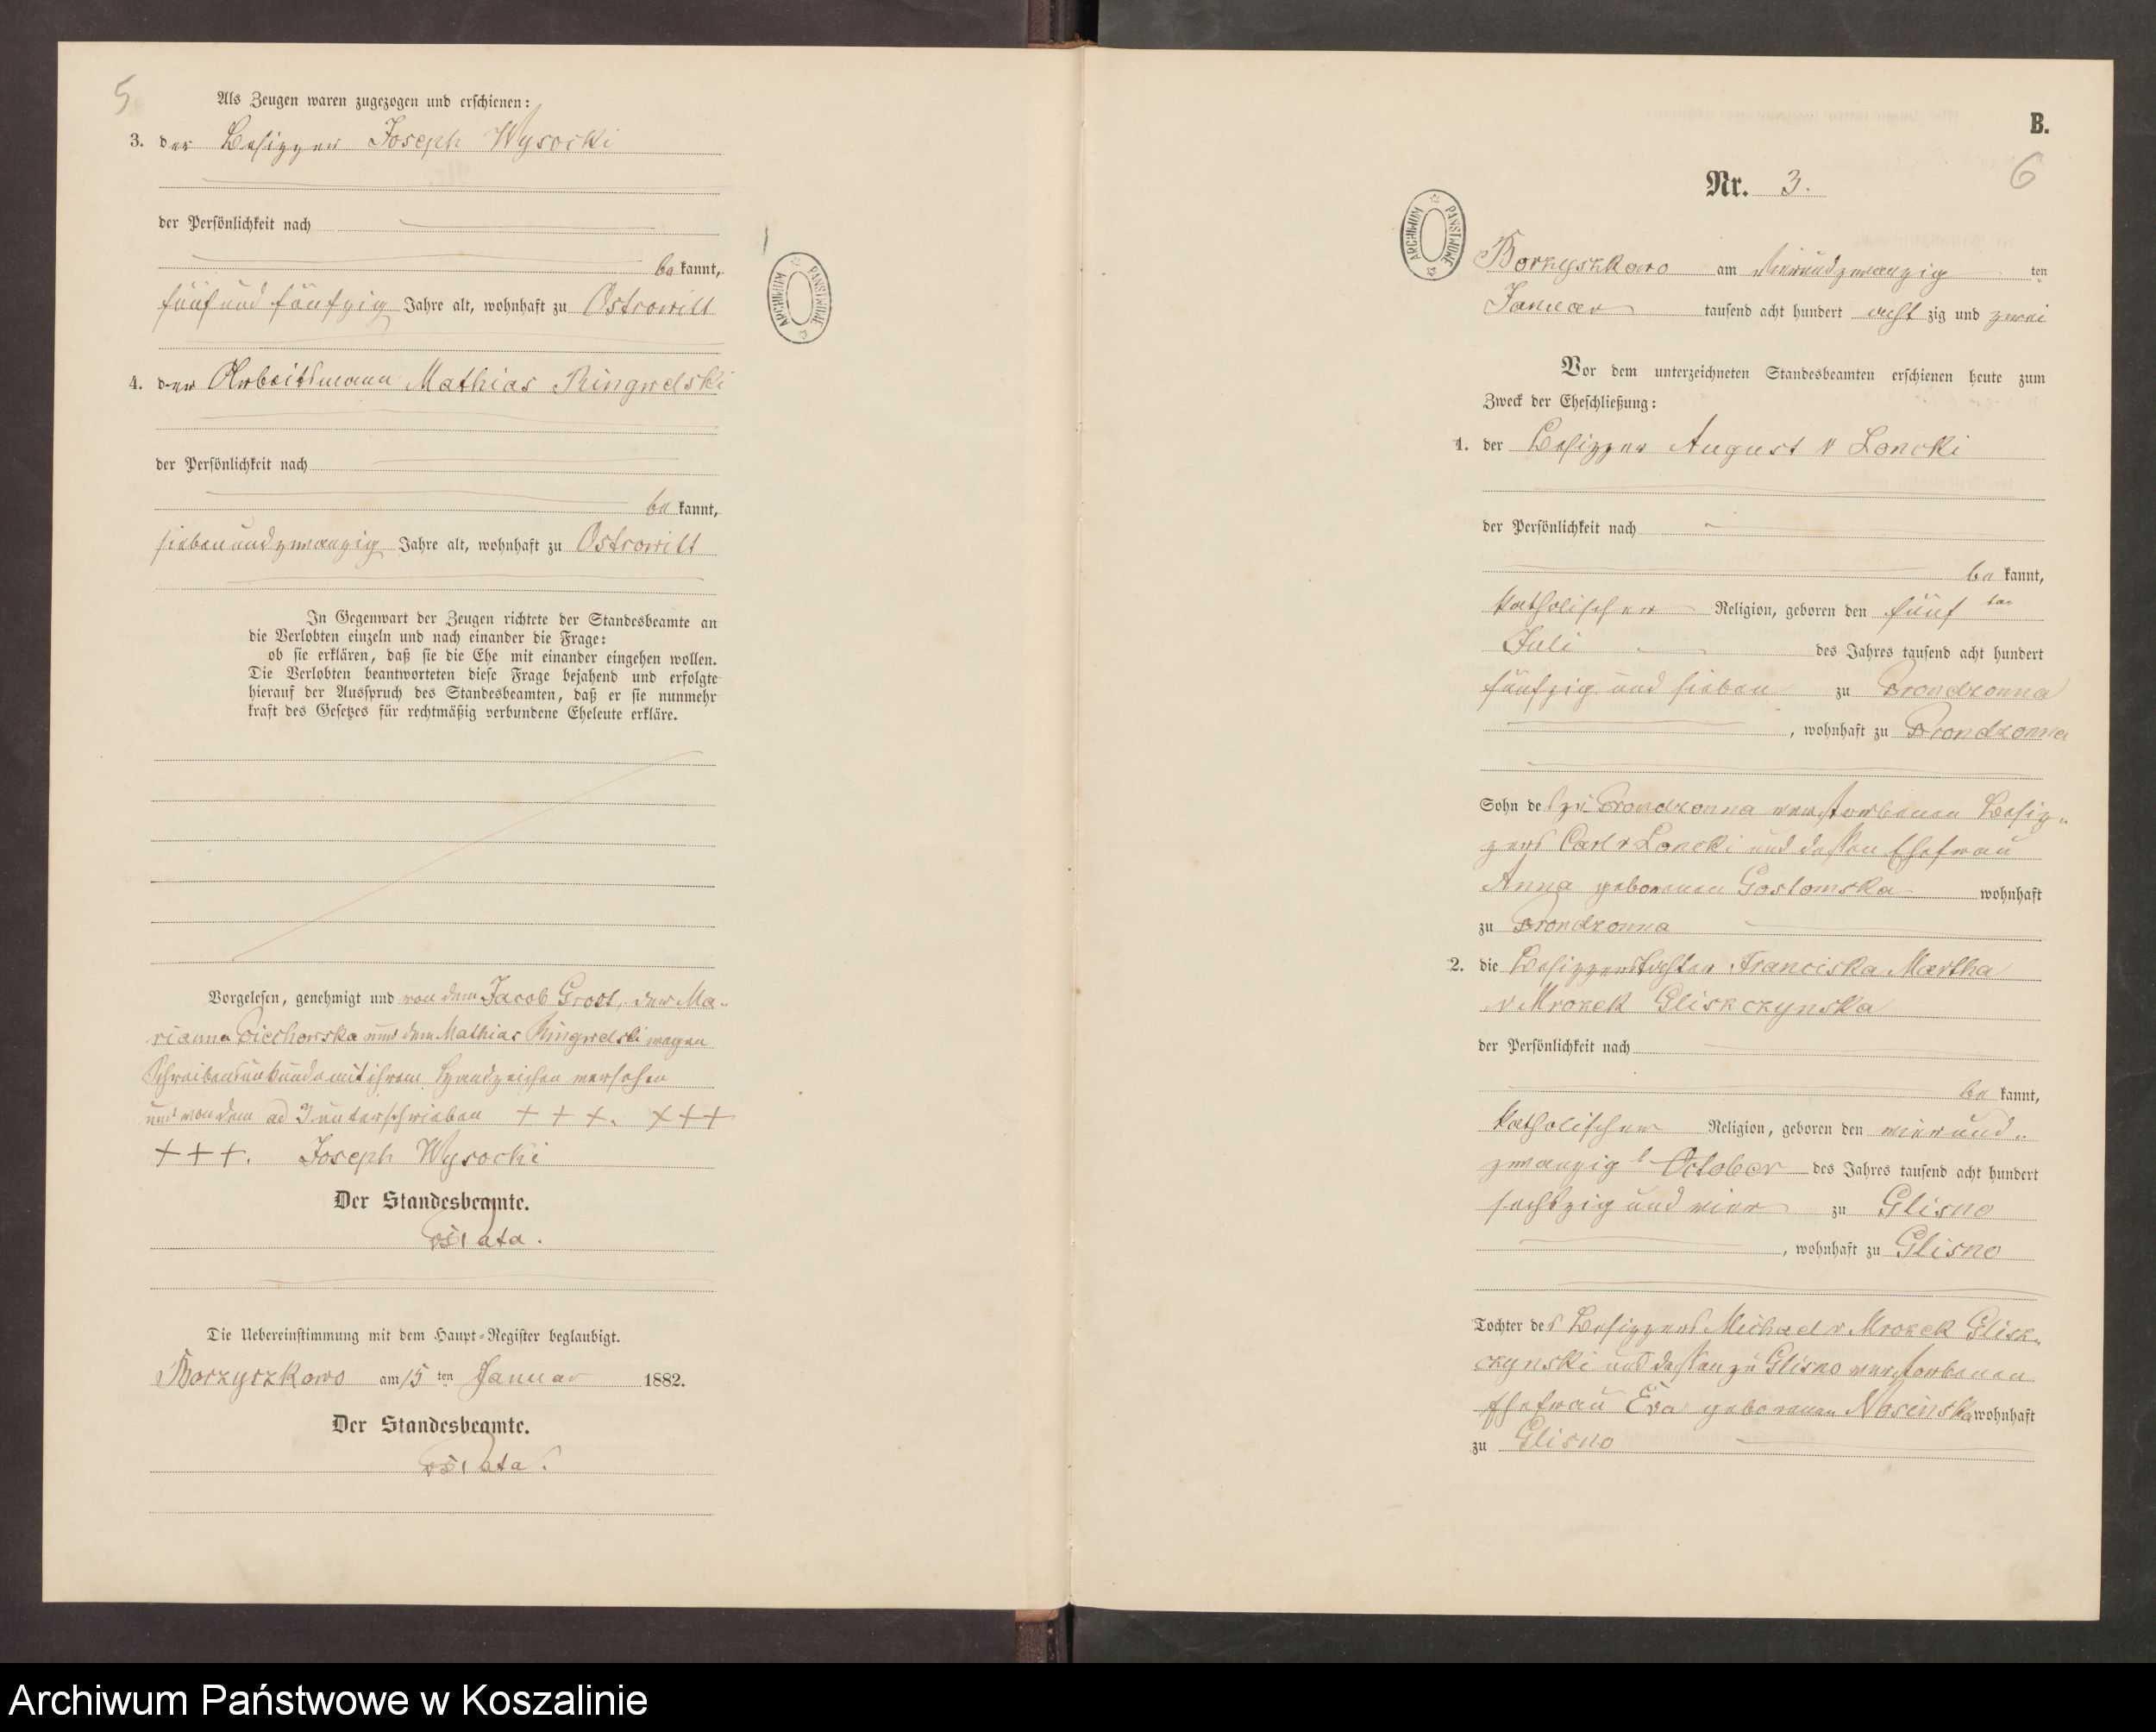 5
Als Zeugen waren zugezogen und erschienen:
3. der Besitzer Joseph Wysocki
der Persönlichkeit nach
be kannt,
fünf und fünfzig Jahre alt, wohnhaft zu Ostrowitt
4. der Arbeitsmann Mathias Ringwelski
der Persönlichkeit nach
be kannt,
siebenundzwanzig Jahre alt, wohnhaft zu Ostrowitt
In Gegenwart der Zeugen richtete der Standesbeamte an
die Verlobten einzeln und nach einander die Frage:
ob sie erklären, daß sie die Ehe mit einander eingehen wollen.
Die Verlobten beantworteten diese Frage bejahend und erfolgte
hierauf der Ausspruch des Standesbeamten, daß er sie nunmehr
kraft des Gesetzes für rechtmäßig verbundene Eheleute erkläre.
Vorgelesen, genehmigt und von dem Jacob Grost, der Ma-
rianna Piechowska und dem Mathias Ringwelski wegen
Schreibensunkunde mit ihrem Handzeichen versehen
und von dem ad 3 unterschrieben + + +. + + +
+ + +. Joseph Wysocki
Der Standesbeamte.
Die Uebereinstimmung mit dem Haupt-Register beglaubigt.
Borzyszkowo am 15 ten Januar 1882.
Der Standesbeamte.
ARCHIWUM PAŃSTWOWE
B.
6
Nr. 3.
ARCHIWUM PAŃSTWOWE
Borzyszkowo am vierundzwanzig ten
Januar tausend acht hundert acht zig und zwei
Vor dem unterzeichneten Standesbeamten erschienen heute zum
Zweck der Eheschließung:
1. der Besitzer August v Loncki
der Persönlichkeit nach
be kannt,
katholischer Religion, geboren den fünf ten
Juli des Jahres tausend acht hundert
fünfzig und sieben zu Prondzonna
, wohnhaft zu Prondzonna
Sohn des zu Prondzonna verstorbenen Besit-
zers Carl v Loncki und dessen Ehefrau
Anna geborenen Gostomska wohnhaft
zu Prondzonna
2. die Besitzerstochter Franciska Martha
v Mrozek Gliszczynska
der Persönlichkeit nach
be kannt,
katholischer Religion, geboren den vierund-
zwanzig t October des Jahres tausend acht hundert
sechszig und vier zu Glisno
, wohnhaft zu Glisno
Tochter des Besitzers Michael v Mrozek Glisz-
czynski und dessen zu Glisno verstorbenen
Ehefrau Eva geborenen Nosinska wohnhaft
zu Glisno
Archiwum Państwowe w Koszalinie